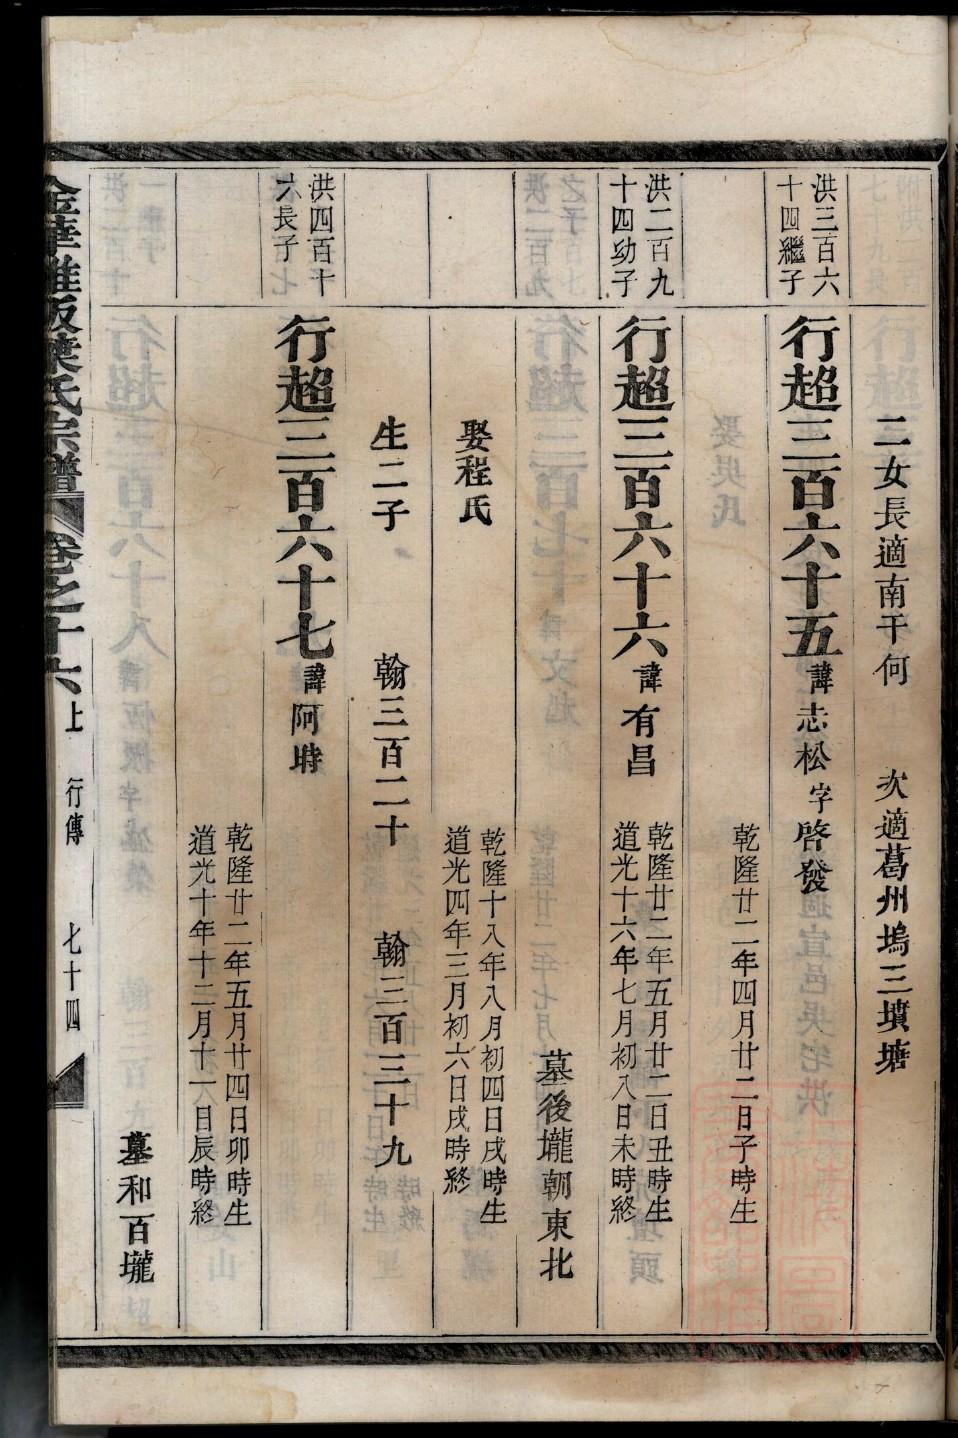 二女長適南干何 次適葛州塢三墳塘
洪三百六
十四繼子
行超三百六十五諱志松字啓發
乾隆廿二年四月廿二日子時生
洪二百九
十四幼子
行超三百六十六諱有昌
乾隆廿二年五月廿二日丑時生
道光十六年七月初八日未時終
墓後壠朝東北
娶程氏
乾隆十八年八月初四日戌時生
道光四年三月初六日戌時終
生二子 翰三百二十 翰三百三十九
洪四百十
六長子
行超三百六十七諱阿時
乾隆廿二年五月廿四日卯時生
道光十年十二月十六日辰時終
墓和百壠
金華 阪葉氏宗譜 卷之十六上 行傳 七十四